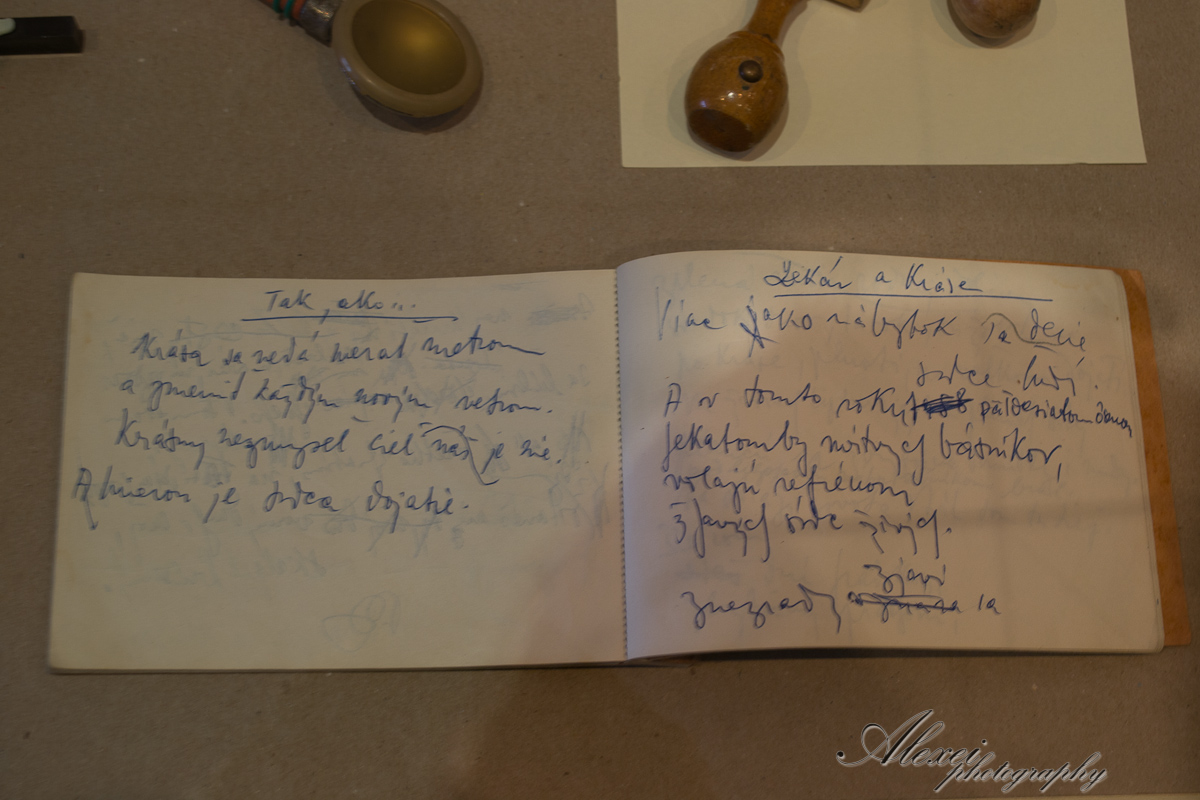 Tak, ako...
Krása sa nedá merať metrom
a zmeniť každým novým vetrom.
Krásny nezmysel cieľ náš je nie!
A mierou je srdca dojatie.
Lekár a Krása
Viac jako nábytok Ťa desí
srdce ľudí.
A v tomto roku päťdesiatom
hekatomby mŕtvych básnikov,
volajú refrénom
žhavých sŕdc živých.
zjaví
Znezrady Ťa
Alexei
photography